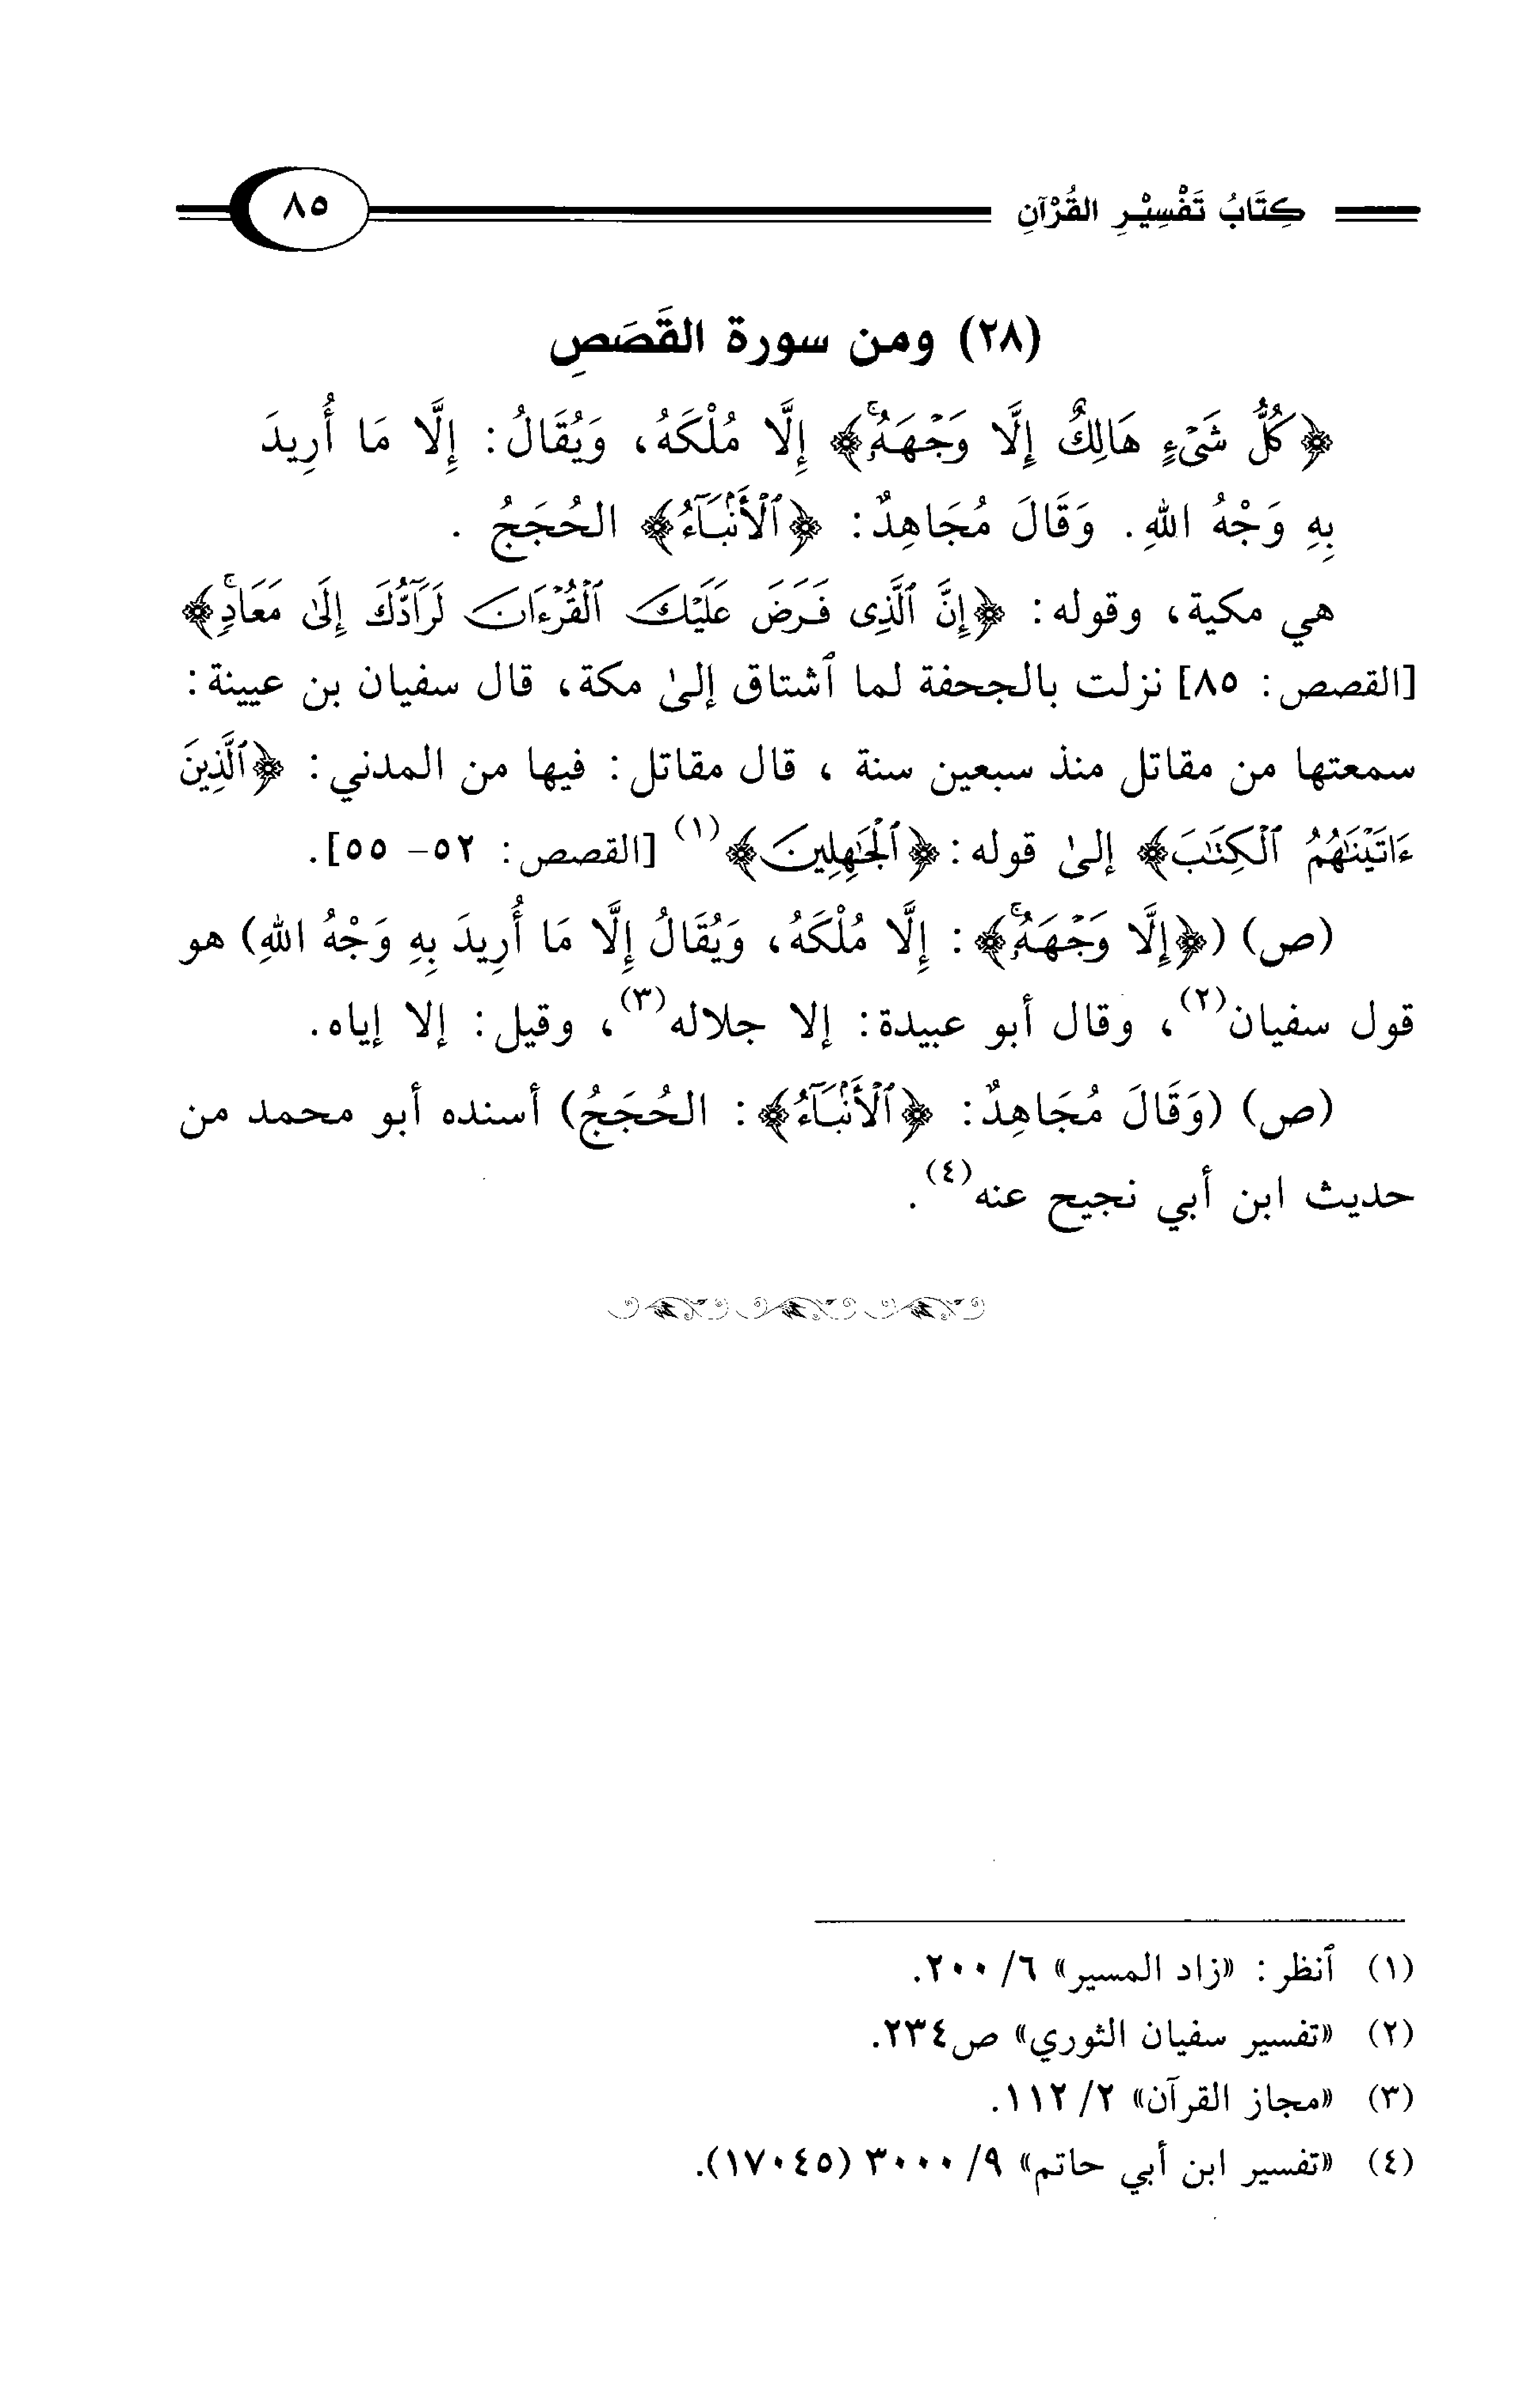 كِتَابُ تَفْسِيْرِ القُرْآنِ
٨٥
(٢٨) ومن سورة القَصَصِ
﴿كُلُّ شَىْءٍ هَالِكٌ إِلَّا وَجْهَهُۥ﴾ إِلَّا مُلْكَهُ، وَيُقَالُ: إِلَّا مَا أُرِيدَ
بِهِ وَجْهُ اللهِ. وَقَالَ مُجَاهِدٌ: ﴿ٱلْأَنۢبَآءُ﴾ الحُجَجُ.
هي مكية، وقوله: ﴿إِنَّ ٱلَّذِى فَرَضَ عَلَيْكَ ٱلْقُرْءَانَ لَرَآدُّكَ إِلَىٰ مَعَادٍۚ﴾
[القصص: ٨٥] نزلت بالجحفة لما ٱشتاق إلىٰ مكة، قال سفيان بن عيينة:
سمعتها من مقاتل منذ سبعين سنة، قال مقاتل: فيها من المدني: ﴿ٱلَّذِينَ
ءَاتَيْنَٰهُمُ ٱلْكِتَٰبَ﴾ إلىٰ قوله: ﴿ٱلْجَٰهِلِينَ﴾(١) [القصص: ٥٢- ٥٥].
(ص) (﴿إِلَّا وَجْهَهُۥۚ﴾: إِلَّا مُلْكَهُ، وَيُقَالُ إِلَّا مَا أُرِيدَ بِهِ وَجْهُ اللهِ) هو
قول سفيان(٢)، وقال أبو عبيدة: إلا جلاله(٣)، وقيل: إلا إياه.
(ص) (وَقَالَ مُجَاهِدٌ: ﴿ٱلْأَنۢبَآءُ﴾: الحُجَجُ) أسنده أبو محمد من
حديث ابن أبي نجيح عنه(٤).
(١) ٱنظر: «زاد المسير» ٦/ ٢٠٠.
(٢) «تفسير سفيان الثوري» ص٢٣٤.
(٣) «مجاز القرآن» ٢/ ١١٢.
(٤) «تفسير ابن أبي حاتم» ٩/ ٣٠٠٠ (١٧٠٤٥).